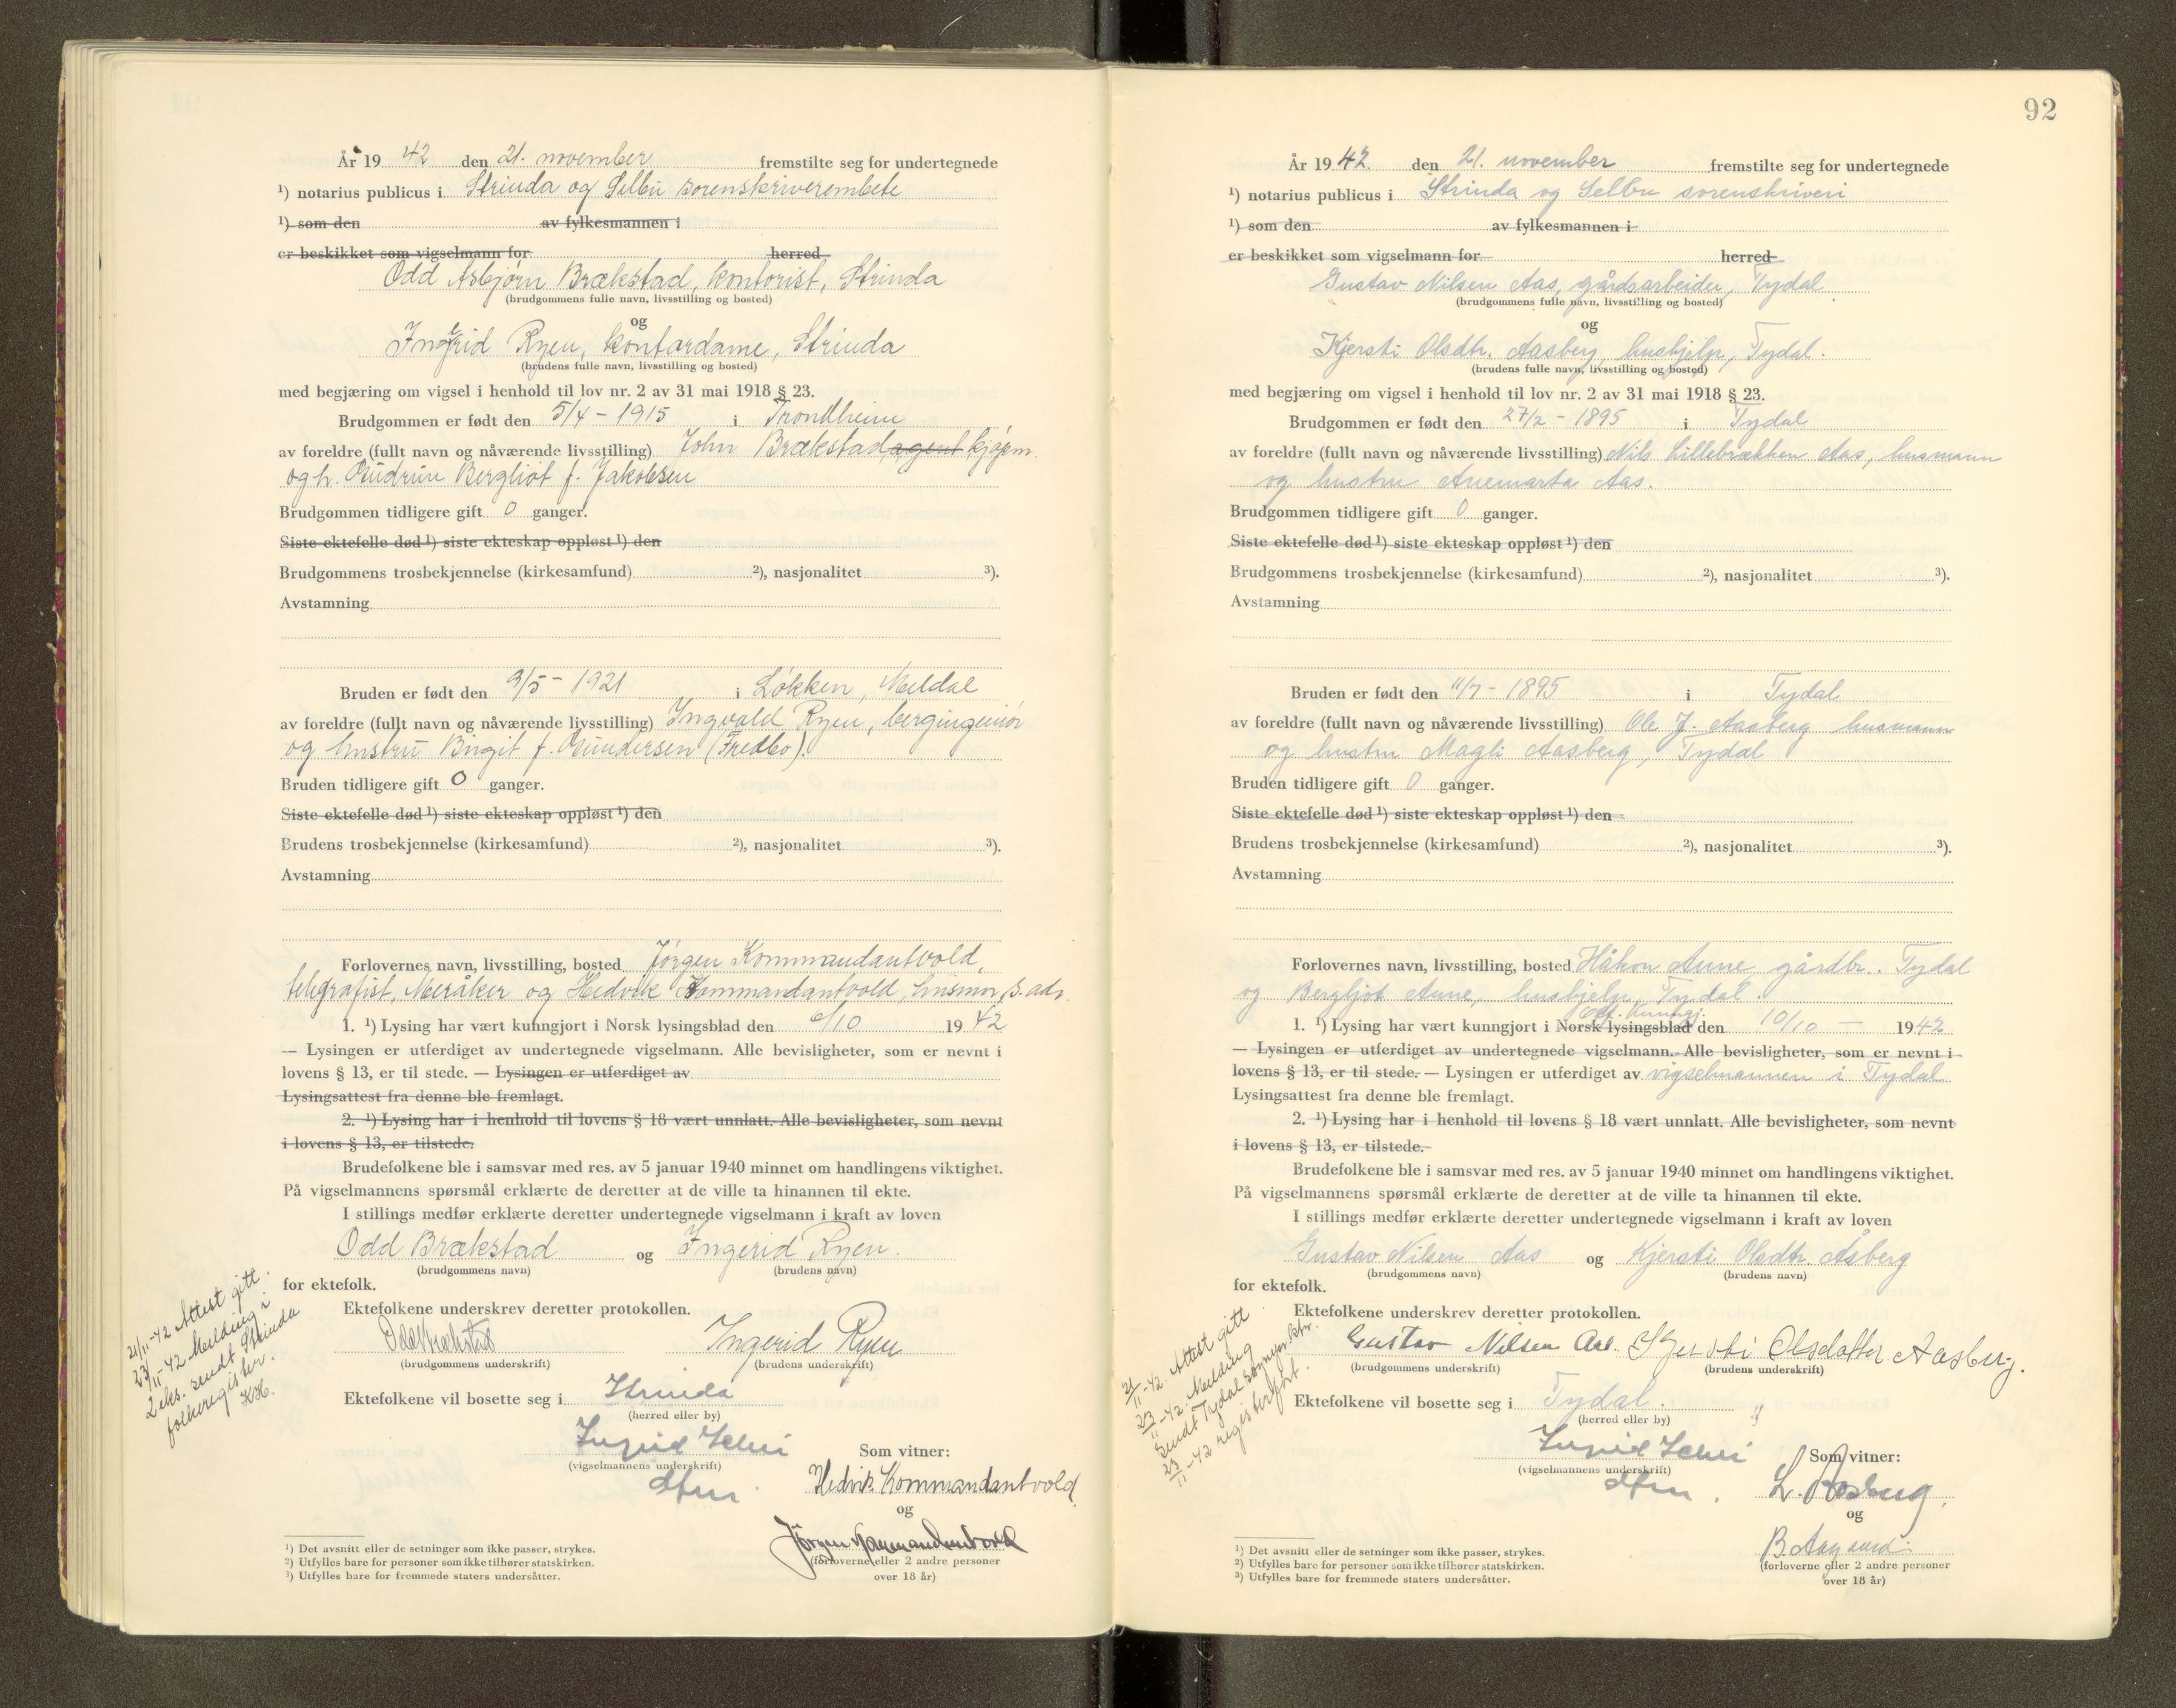 År 19 42 den 21. november fremstilte seg for undertegnede
¹) notarius publicus i Strinda og Selbu sorenskriverembete
¹) som den av fylkesmannen i
er beskikket som vigselmann for herred
Odd Asbjørn Brækstad, kontorist, Strinda
(brudgommens fulle navn, livsstilling og bosted)
og
Ingerid Ryen, kontordame, Strinda
(brudens fulle navn, livsstilling og bosted)
med begjæring om vigsel i henhold til lov nr. 2 av 31 mai 1918 § 23.
Brudgommen er født den 5/4 - 1915 i Trondheim
av foreldre (fullt navn og nåværende livsstilling) John Brækstad agent kjøpm.
og h. Gudrun Bergliot f. Jakobsen
Brudgommen tidligere gift 0 ganger.
Siste ektefelle død ¹) siste ekteskap oppløst ¹) den
Brudgommens trosbekjennelse (kirkesamfund) ²), nasjonalitet ³).
Avstamning
Bruden er født den 9/5 - 1921 i Løkken, Meldal
av foreldre (fullt navn og nåværende livsstilling) Ingvald Ryen, bergingeniør
og hustru Birgit f. Gundersen (Fredbo).
Bruden tidligere gift 0 ganger.
Siste ektefelle død ¹) siste ekteskap oppløst ¹) den
Brudens trosbekjennelse (kirkesamfund) ²), nasjonalitet ³).
Avstamning
Forlovernes navn, livsstilling, bosted Jørgen Kommandantvold,
telegrafist, Meråker og Hedvik Kommandantvold, husmor, s. ads.
1. ¹) Lysing har vært kunngjort i Norsk lysingsblad den /10 19 42
— Lysingen er utferdiget av undertegnede vigselmann. Alle bevisligheter, som er nevnt i
lovens § 13, er til stede. — Lysingen er utferdiget av
Lysingsattest fra denne ble fremlagt.
2. ¹) Lysing har i henhold til lovens § 18 vært unnlatt. Alle bevisligheter, som nevnt
i lovens § 13, er tilstede.
Brudefolkene ble i samsvar med res. av 5 januar 1940 minnet om handlingens viktighet.
På vigselmannens spørsmål erklærte de deretter at de ville ta hinannen til ekte.
I stillings medfør erklærte deretter undertegnede vigselmann i kraft av loven
Odd Brækstad og Ingerid Ryen.
(brudgommens navn) (brudens navn)
for ektefolk.
Ektefolkene underskrev deretter protokollen.
Odd Brækstad Ingerid Ryen
(brudgommens underskrift) (brudens underskrift)
Ektefolkene vil bosette seg i Strinda
(herred eller by)
Som vitner:
(vigselmannens underskrift)
Hedvik Kommandantvold
og
Jörgen Kommandantvold
(forloverne eller 2 andre personer
over 18 år)
21/11-42 Attest gitt.
23/11-42 Melding i
2 eks. sendt Strinda
folkeregister.
KH.
¹) Det avsnitt eller de setninger som ikke passer, strykes.
²) Utfylles bare for personer som ikke tilhører statskirken.
³) Utfylles bare for fremmede staters undersåtter.
92
År 19 42 den 21. november fremstilte seg for undertegnede
¹) notarius publicus i Strinda og Selbu sorenskriveri
¹) som den av fylkesmannen i
er beskikket som vigselmann for herred
Gustav Nilsen Aas, gårdsarbeider, Tydal
(brudgommens fulle navn, livsstilling og bosted)
og
Kjersti Olsdtr. Aasberg, hushjelp, Tydal.
(brudens fulle navn, livsstilling og bosted)
med begjæring om vigsel i henhold til lov nr. 2 av 31 mai 1918 § 23.
Brudgommen er født den 27/2 - 1895 i Tydal
av foreldre (fullt navn og nåværende livsstilling) Nils Lillebrækken Aas, husmann
og hustru Anemarta Aas.
Brudgommen tidligere gift 0 ganger.
Siste ektefelle død ¹) siste ekteskap oppløst ¹) den
Brudgommens trosbekjennelse (kirkesamfund) ²), nasjonalitet ³).
Avstamning
Bruden er født den 11/7 - 1895 i Tydal
av foreldre (fullt navn og nåværende livsstilling) Ole J. Aasberg husmann
og hustru Magli Aasberg, Tydal
Bruden tidligere gift 0 ganger.
Siste ektefelle død ¹) siste ekteskap oppløst ¹) den
Brudens trosbekjennelse (kirkesamfund) ²), nasjonalitet ³).
Avstamning
Forlovernes navn, livsstilling, bosted Håkon Aune gårdbr. Tydal
og Bergljot Aune, hushjelp, Tydal.
kunngj.
1. ¹) Lysing har vært kunngjort i Norsk lysingsblad den 10/10 — 19 42
— Lysingen er utferdiget av undertegnede vigselmann. Alle bevisligheter, som er nevnt i
lovens § 13, er til stede. — Lysingen er utferdiget av vigselmannen i Tydal
Lysingsattest fra denne ble fremlagt.
2. ¹) Lysing har i henhold til lovens § 18 vært unnlatt. Alle bevisligheter, som nevnt
i lovens § 13, er tilstede.
Brudefolkene ble i samsvar med res. av 5 januar 1940 minnet om handlingens viktighet.
På vigselmannens spørsmål erklærte de deretter at de ville ta hinannen til ekte.
I stillings medfør erklærte deretter undertegnede vigselmann i kraft av loven
Gustav Nilsen Aas og Kjersti Olsdtr. Åsberg
(brudgommens navn) (brudens navn)
for ektefolk.
Ektefolkene underskrev deretter protokollen.
Gustav Nilsen Aas. Kjersti Olsdatter Aasberg.
(brudgommens underskrift) (brudens underskrift)
Ektefolkene vil bosette seg i Tydal.
(herred eller by)
Som vitner:
(vigselmannens underskrift)
og
(forloverne eller 2 andre personer
over 18 år)
21/11-42. Attest gitt
23/11-42. Melding
sendt Tydal
23/11-42 registerført.
¹) Det avsnitt eller de setninger som ikke passer, strykes.
²) Utfylles bare for personer som ikke tilhører statskirken.
³) Utfylles bare for fremmede staters undersåtter.